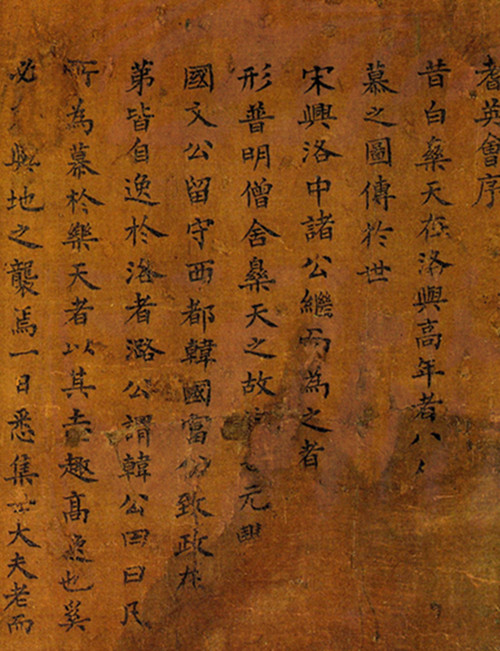 耆英會序
昔白樂天在洛與高年者八
慕之圖傳於世
宋興洛中諸公繼而為之者
形普明僧舍樂天之故元豐
國文公留守西都韓國富公致政在
第皆自逸於洛者潞公謂韓公曰凡
所為慕於樂天者以其志趣高逸也奚
必與地之襲焉一日悉集士大夫老而